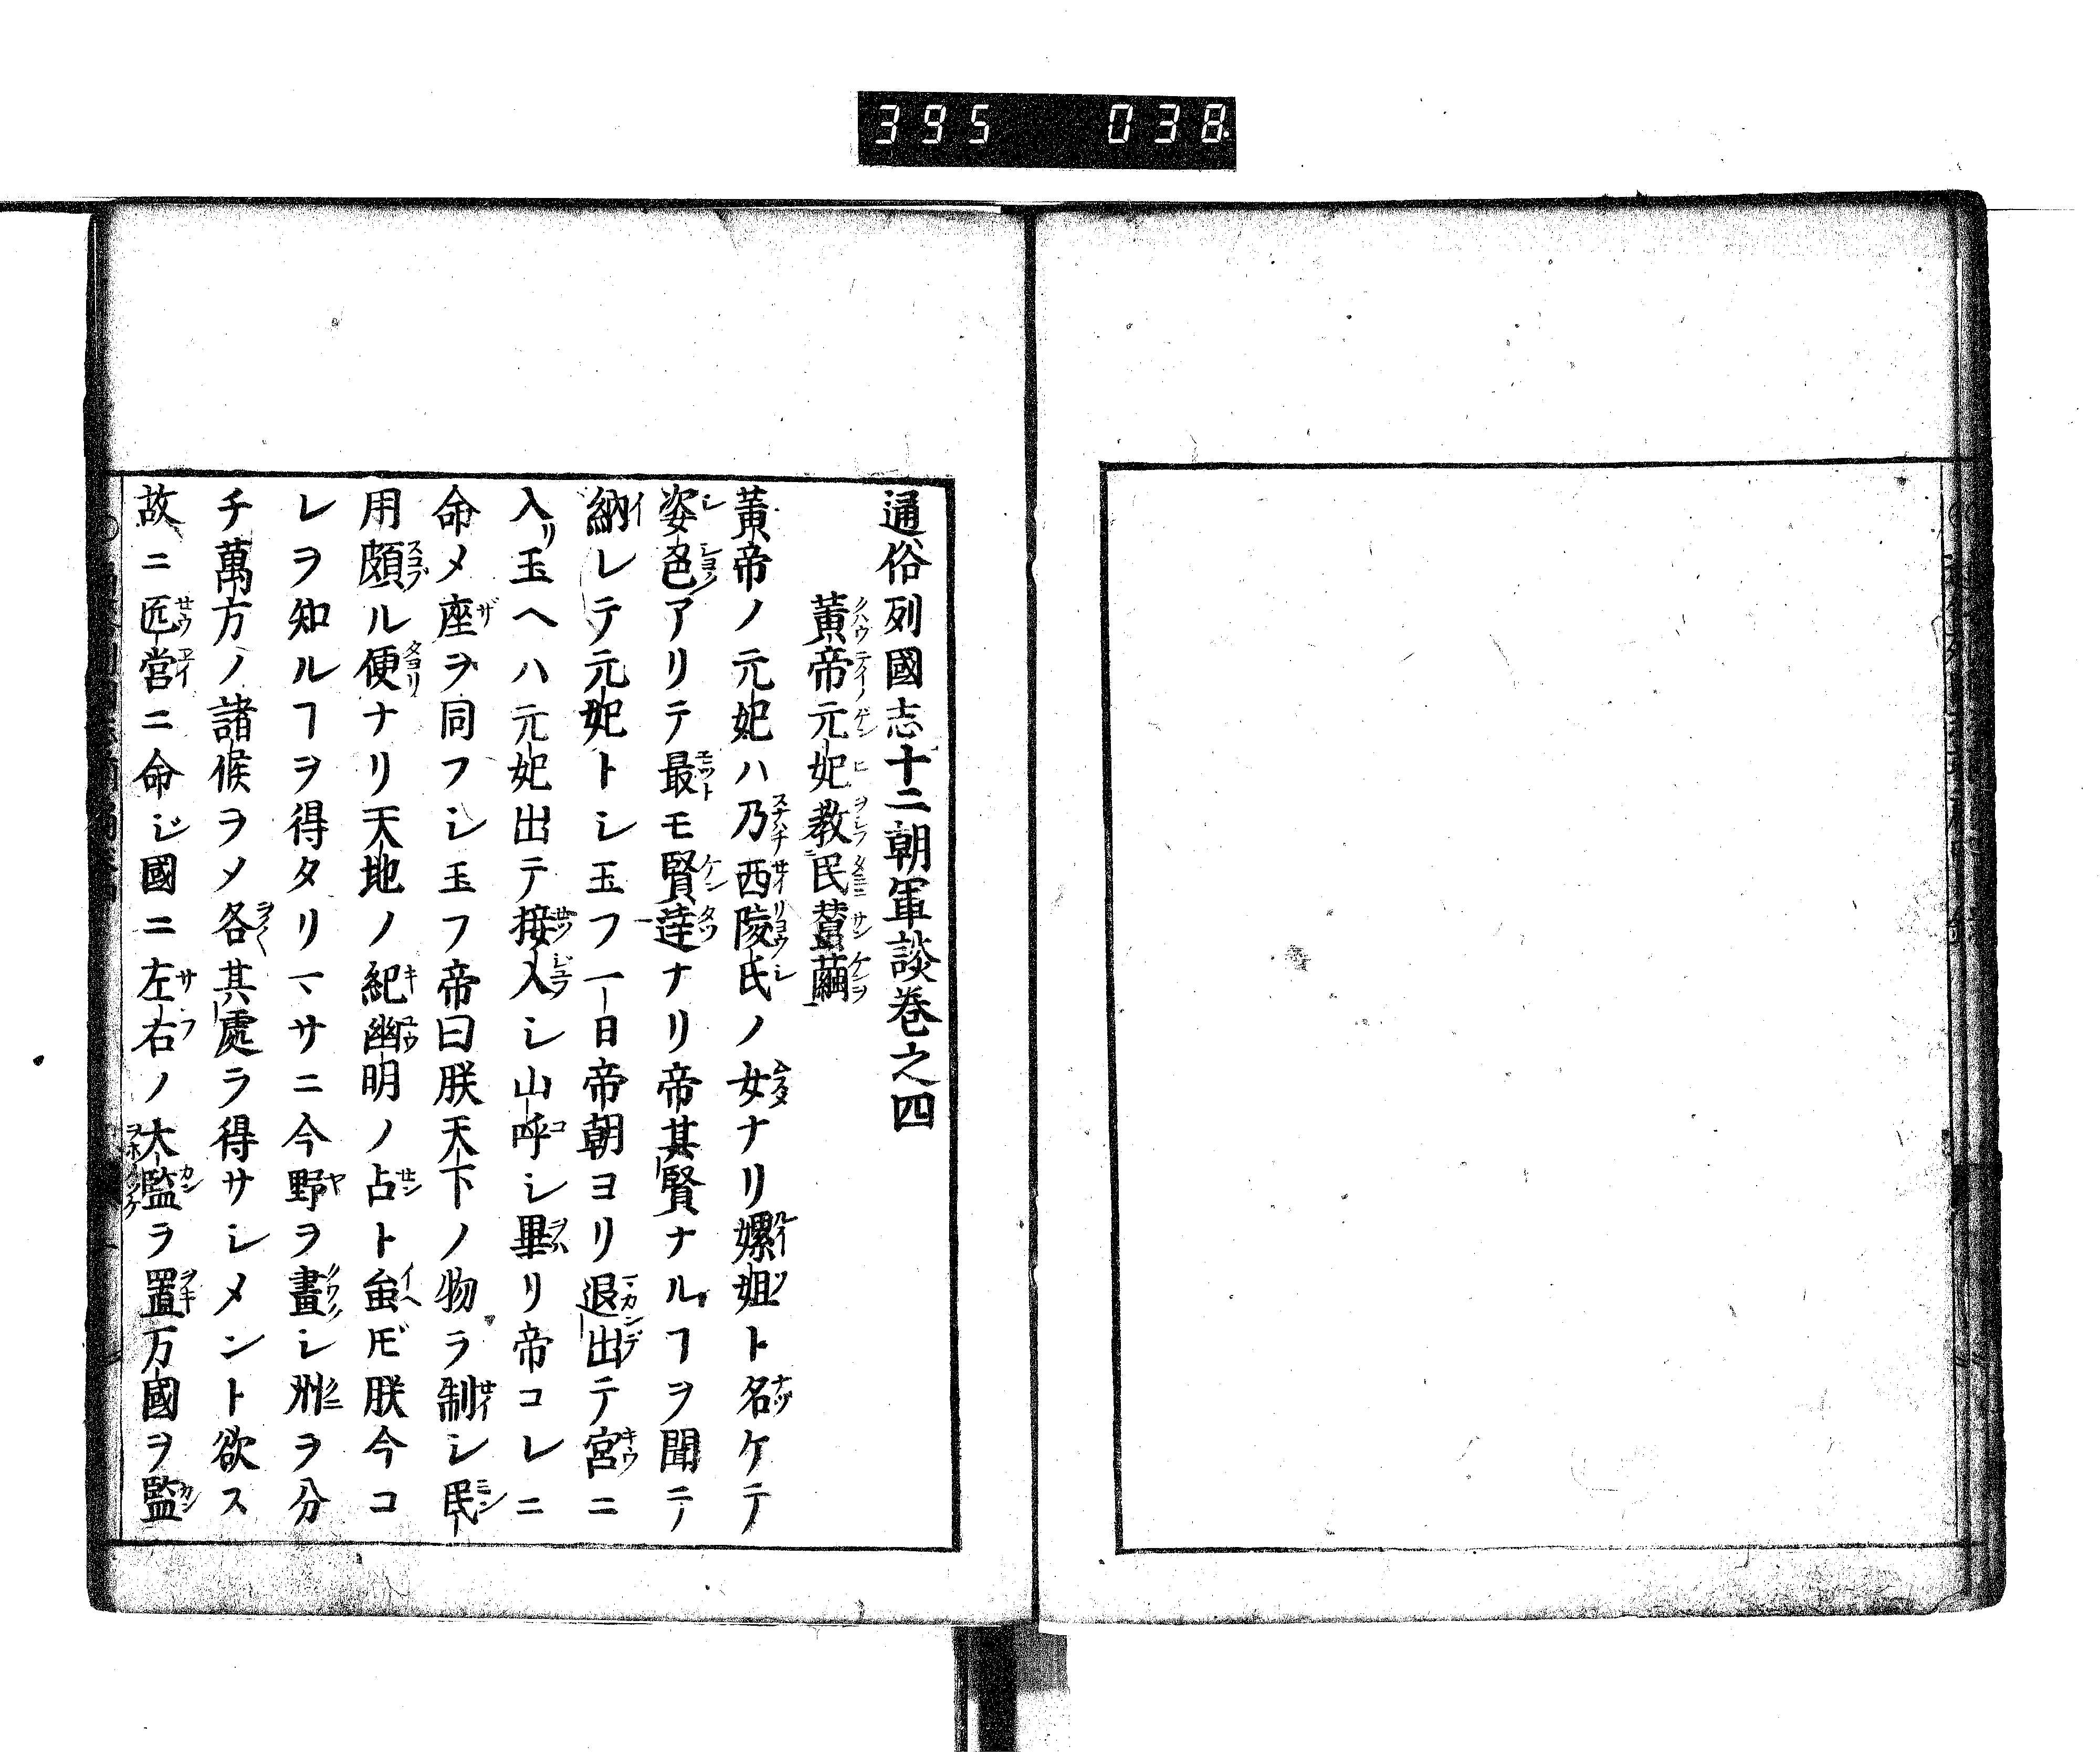 395 038
通俗列國志十二朝軍談巻之四
黃帝元妃教民蠶繭
黃帝ノ元妃ハ乃西陵氏ノ女ナリ嫘姐ト名ケテ
姿色アリテ最モ賢達ナリ帝其賢ナルヿヲ聞テ
納レテ元妃トシ玉フ一日帝朝ヨリ退出テ宮ニ
入リ玉ヘハ元妃出テ接入シ山呼シ畢リ帝コレニ
命メ座ヲ同フシ玉フ帝曰朕天下ノ物ヲ制シ民
用頗ル便ナリ天地ノ紀幽明ノ占ト𧈧𪜈朕今コ
レヲ知ルヿヲ得タリマサニ今野ヲ畫シ州ヲ分
チ萬方ノ諸候ヲメ各其處ヲ得サシメント欲ス
故ニ匠営ニ命ジ國ニ左右ノ大監ヲ置万國ヲ監